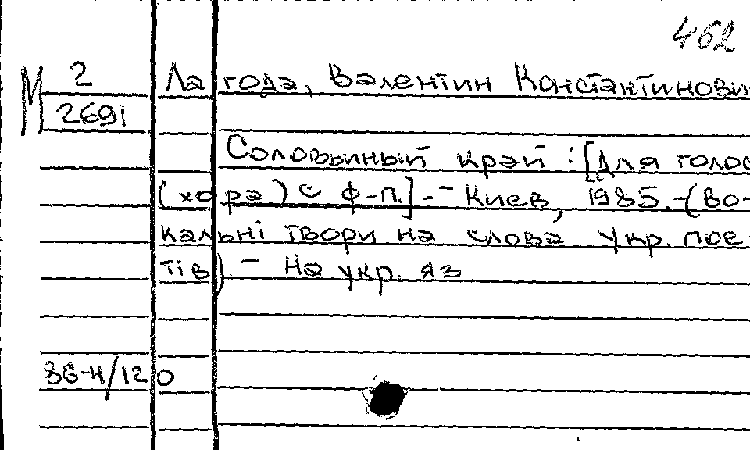 462
М 2
269і
Лагода, Валентин Константинови
Соловьиный край : [Для голос
(хора) с ф-п.] - Киев, 1985. - (Во-
кальні твори на слова укр. пое-
тів) - На укр. яз
86-4/120